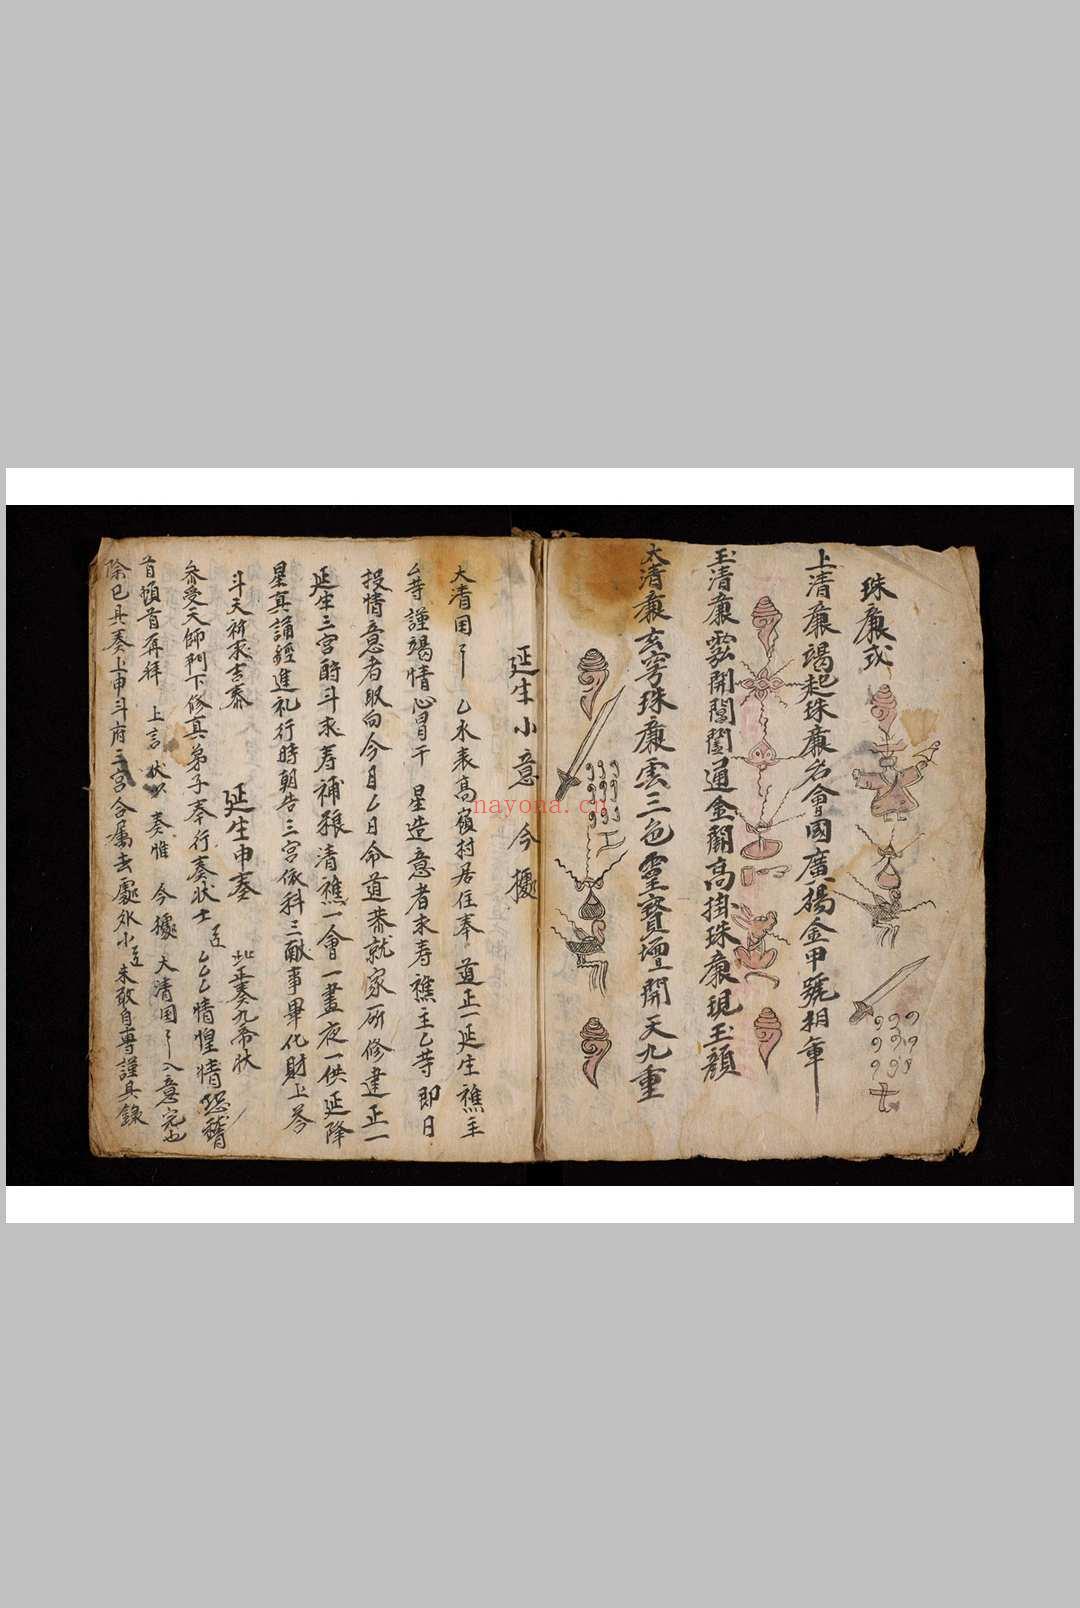 珠簾式
上清簾竭起珠簾名會國廣揚金甲號相車
玉清簾雲開閶闔通金闕高掛珠簾現玉顏
太清簾玄穹珠簾雲三色靈寶壇開天九重
延生小意 今據
大清国 乙水表高嶺村居住奉 道正一延生樵主
乙等謹竭情心冒干 星造意者未寿樵主乙等即日
投情意者取向今月乙日命道恭就家所修建正一
延生三宮酹斗求寿補粮清樵一會一晝夜一供延降
星真誦經進礼行時朝告三宮依科三献事畢化財上荅
斗天祈求吉泰 延生申奏 此正奏九帝状
参受天師門下修真弟子奉行奏状士 乙乙情惶情恐稽
首頓首再拜 上言 状以 奏惟 今據 大清国 入意完也
除已具奏上申斗府三宮合属去處外小 未敢自專謹具錄
nayona.cn